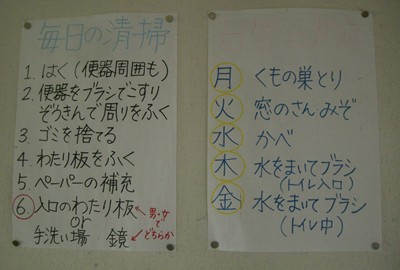 毎日の清掃
1. はく(便器周囲も)
2. 便器をブラシでこすり
ぞうきんで周りをふく
3. ゴミを捨てる
4. わたり板をふく
5. ペーパーの補充
⑥. 入口のわたり板
or
手洗い場 鏡
男・女で
どちらか
月 くもの巣とり
火 窓のさん・みぞ
水 かべ
木 水をまいてブラシ
(トイレ入口)
金 水をまいてブラシ
(トイレ中)